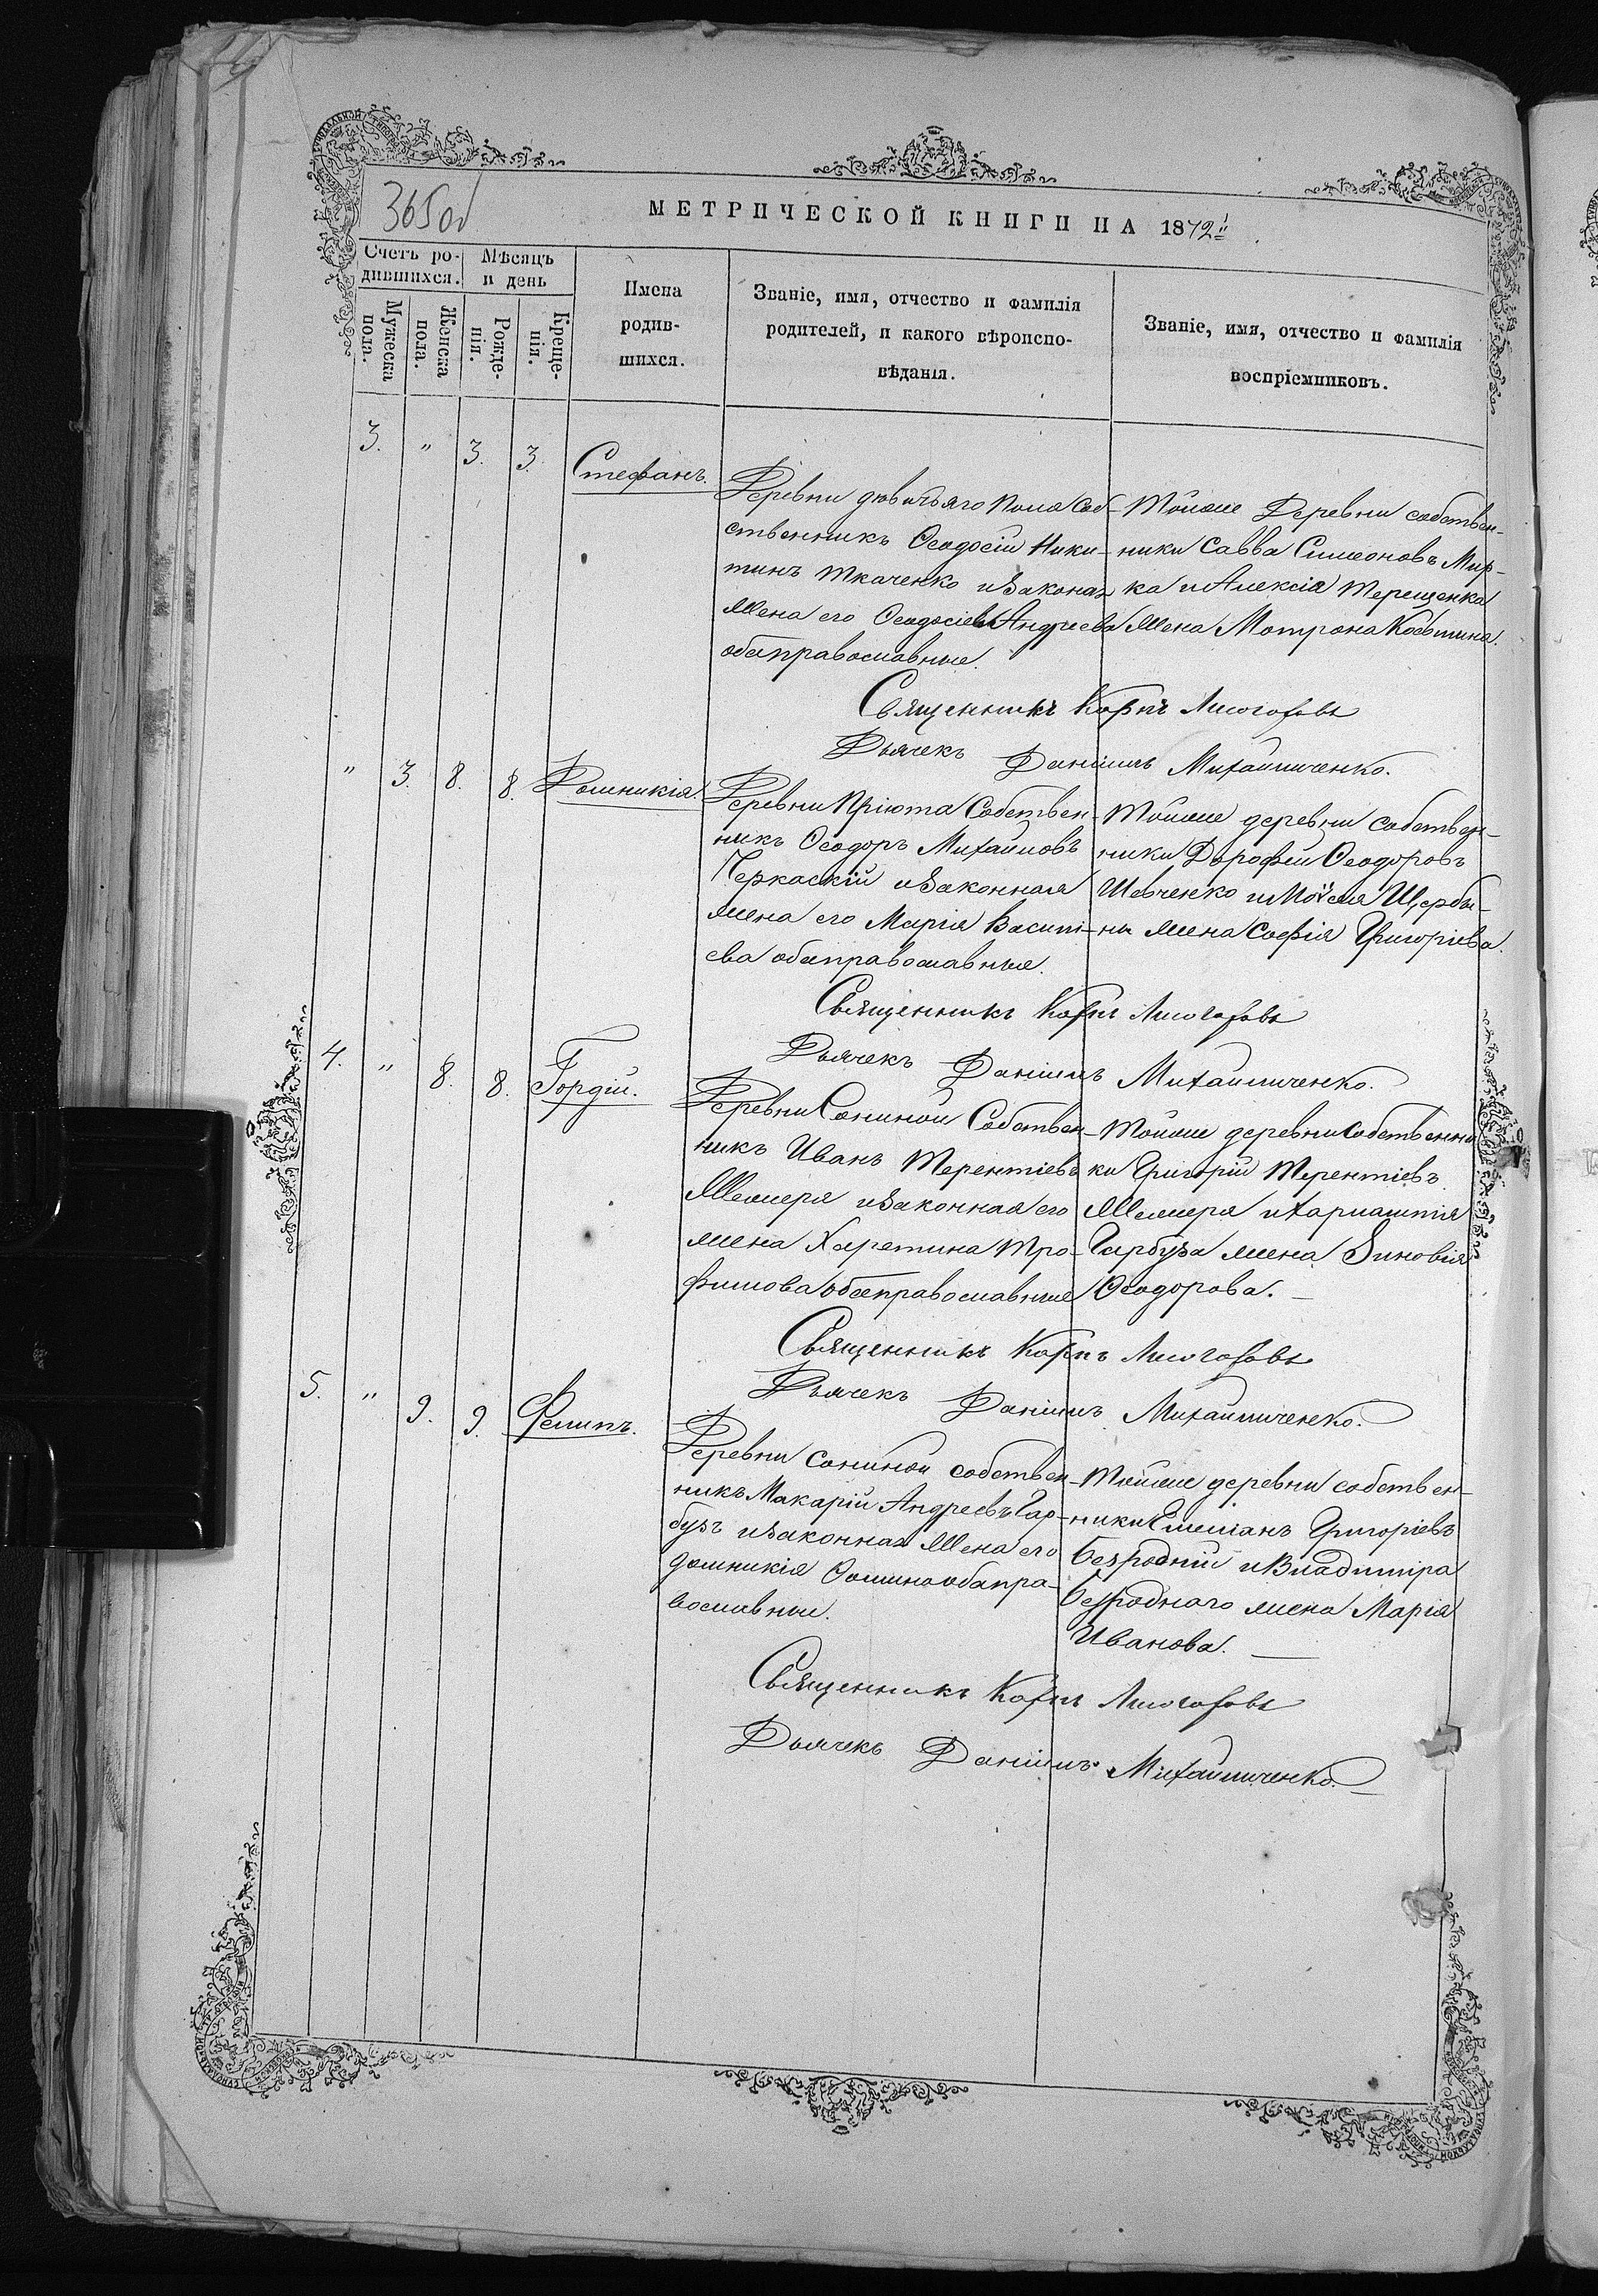 365об
МЕТРИЧЕСКОЙ КНИГИ НА 1872й
Счетъ ро-
дившихся.
Мѣсяцъ
и день
Мужеска
пола.
Женска
пола.
Рожде-
нія.
Креще-
нія.
Имена
родив-
шихся.
Званіе, имя, отчество и фамилія
родителей, и какого вѣроиспо-
вѣданія.
Званіе, имя, отчество и фамилія
воспріемниковъ.
3. " 3. 3. Стефанъ.
Деревни дювичьяго поля Соб-
ственникъ Ѳеодосій Ники-
тинъ Ткаченко и Законая
Жена его Ѳеодосіева Андреева
оба православные.
Тойже Деревни собствен-
ники Савва Симеоновъ Мир-
ка и Алексія Терещенка
Жена Мотрона Костина.
Священникъ Карпъ Лисогоровъ
Дьячекъ Даніилъ Михайличенко.
" 3. 8. 8. Домникія.
Деревни Пріюта Собствен-
никъ Ѳеодоръ Михайловъ
Черкаскій и Законная
жена его Марія Василі-
ева оба православные.
Тойже деревни собствен-
ники Дорофей Ѳеодоровъ
Шевченко и Мойсея Щерби-
ни жена Софія Григоріева.
Священникъ Карпъ Лисогоровъ
Дьячекъ Даніилъ Михайличенко.
4. " 8. 8. Гордій.
Деревни Сониной Собствен-
никъ Иванъ Терентіевъ
Шемшеря и Законная его
жена Харетина Тро-
фимова оба православные
Тойже деревни Собственни
ки Григорій Терентіевъ
Шемшеря и Харлампія
Гарбуза жена Зиновія
Ѳеодорова.
Священникъ Карпъ Лисогоровъ
Дьячекъ Даніилъ Михайличенко.
5. " 9. 9. Филипъ.
Деревни Сониной собствен-
никъ Макарій Андреевъ Гар-
бузъ и Законная Жена его
Домникія Ѳомина оба пра-
вославные.
Тойже деревни собствен-
ники Емеліанъ Григоріевъ
Безродній и Владиміра
Безродного жена Марія
Иванова.
Священникъ Карпъ Лисогоровъ
Дьячекъ Даніилъ Михайличенко.